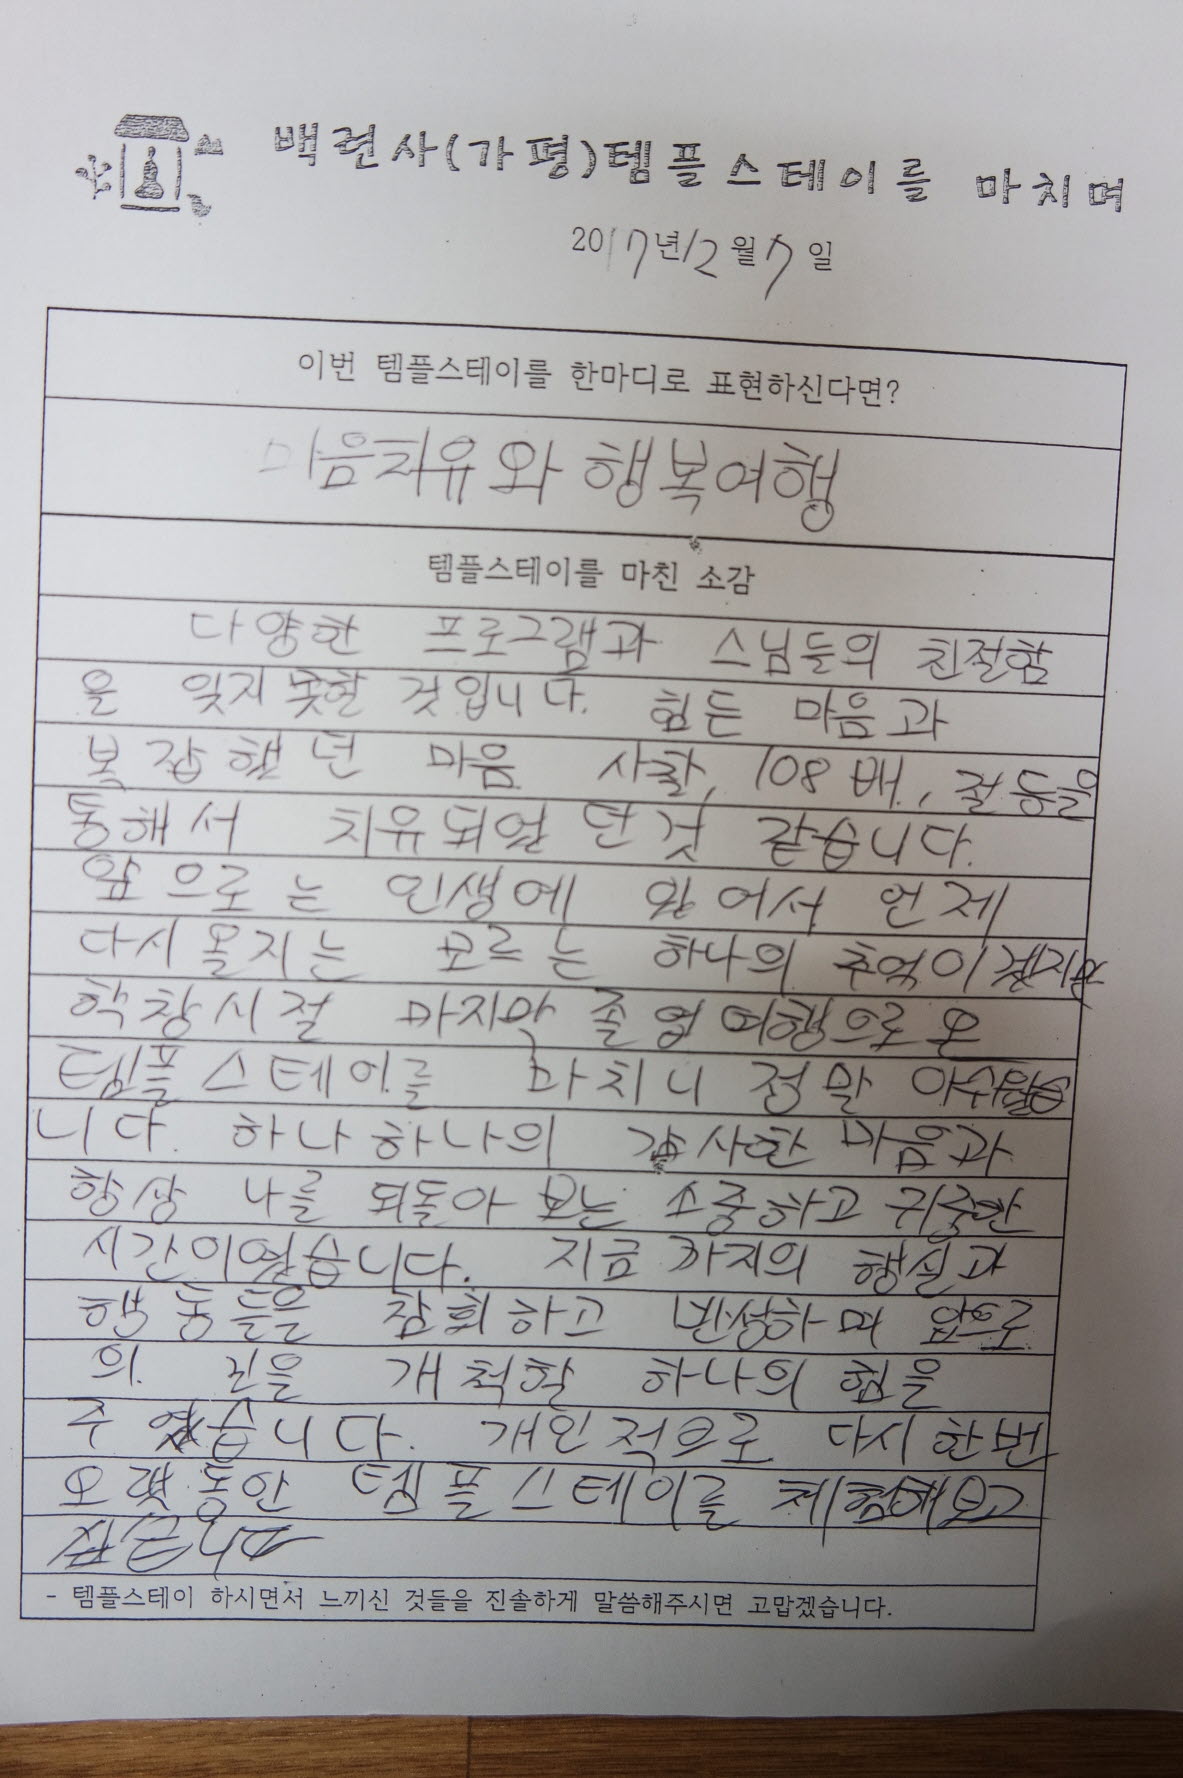 백련사(가평)템플스테이를 마치며
2017년 12월 7일
이번 템플스테이를 한마디로 표현하신다면?
마음치유와 행복여행
템플스테이를 마친 소감
다양한 프로그램과 스님들의 친절함
을 잊지 못할 것입니다. 힘든 마음과
복잡했던 마음 사찰, 108배, 절등을
통해서 치유되었던것 같습니다.
앞으로는 인생에 있어서 언제
다시올지는 모르는 하나의 추억이겠지만
학창시절 마지막 졸업여행으로 온
템플스테이를 마치니 정말 아쉬웠습
니다. 하나하나의 감사한 마음과
항상 나를 되돌아 보는 소중하고 귀중한
시간이었습니다. 지금까지의 행실과
행동들을 참회하고 반성하며 앞으로
의 길을 개척할 하나의 힘을
주었습니다. 개인적으로 다시한번
오랫동안 템플스테이를 체험해보고
- 템플스테이 하시면서 느끼신 것들을 진솔하게 말씀해주시면 고맙겠습니다.